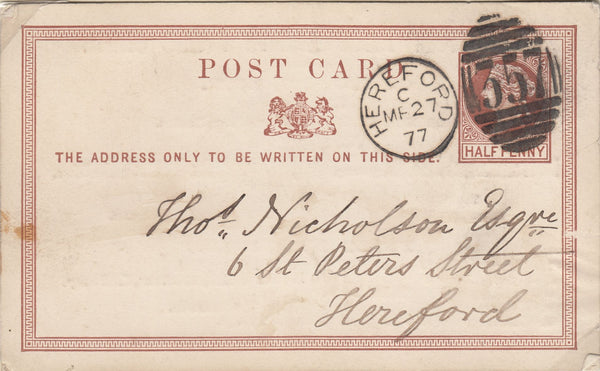 POST CARD
HEREFORD
C
MR 27
77
THE ADDRESS ONLY TO BE WRITTEN ON THIS SIDE.
HALFPENNY
Thos. Nicholson Esqre
6 St Peters Street
Hereford